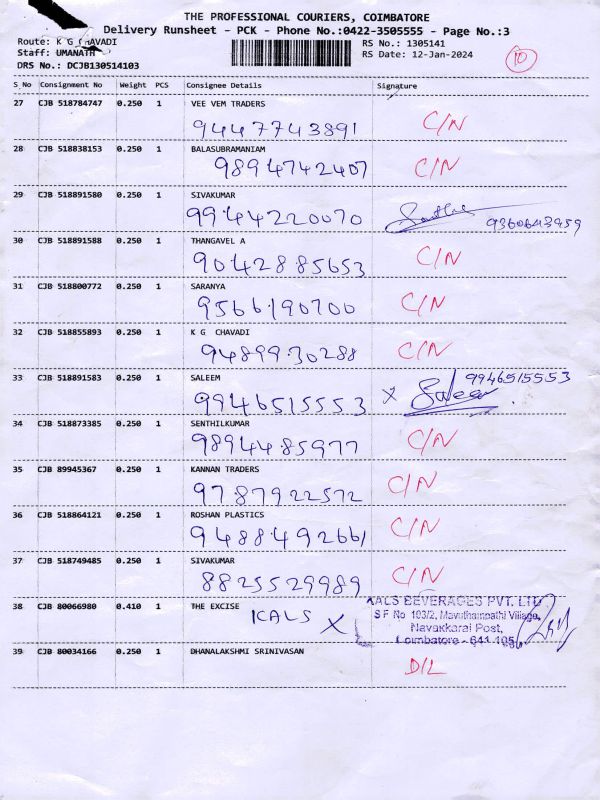 THE PROFESSIONAL COURIERS, COIMBATORE
Delivery Runsheet - PCK - Phone No.:0422-3505555 - Page No.:3
Route: K G CHAVADI
RS No.: 1305141
Staff: UMANATH
RS Date: 12-Jan-2024
10
DRS No.: DCJB130514103
S_No Consignment No Weight PCS Consignee Details Signature
27 CJB 518784747 0.250 1 VEE VEM TRADERS
9447743891 C/N
28 CJB 518838153 0.250 1 BALASUBRAMANIAM
9894742407 C/N
29 CJB 518891580 0.250 1 SIVAKUMAR
9944220070 9360643959
30 CJB 518891588 0.250 1 THANGAVEL A
9042885653 C/N
31 CJB 518800772 0.250 1 SARANYA
9566190700 C/N
32 CJB 518855893 0.250 1 K G CHAVADI
9489930288 C/N
33 CJB 518891583 0.250 1 SALEEM
9946515553 X Saleem 9946515553
34 CJB 518873385 0.250 1 SENTHILKUMAR
9894485977 C/N
35 CJB 89945367 0.250 1 KANNAN TRADERS
9787922572 C/N
36 CJB 518864121 0.250 1 ROSHAN PLASTICS
9488492661 C/N
37 CJB 518749485 0.250 1 SIVAKUMAR
8825529989 C/N
38 CJB 80066980 0.410 1 THE EXCISE ICALS X
KALS BEVERAGES PVT. LTD
S F No 103/2, Mavuthampathi Village,
Navakkarai Post,
Coimbatore - 641 105
39 CJB 80034166 0.250 1 DHANALAKSHMI SRINIVASAN
D/L